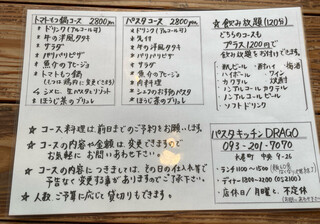 トマトもつ鍋コース 2800円
★ドリンク(アルコール可)
★先付
★牛の洋風タタキ
★サラダ
★パリパリピザ
★魚介のアヒージョ
★トマトもつ鍋
(もつは鶏肉に変更できます)
★ほうじ茶のブリュレ
パスタコース 2800円
★ドリンク(アルコール可)
★先付
★牛の洋風タタキ
★サラダ
★パリパリピザ
★魚介のアヒージョ
★肉料理
★パスタ
★ほうじ茶のブリュレ
☆飲み放題(120分)
どちらのコースも
プラス1200円で
飲み放題をお付けできます。
・ハイボール ・ワイン
・カクテル
・ノンアルコールビール
・ソフトドリンク
★コース料理は、前日までのご予約をお願いします。
★コースの内容や金額は変更できますので
お気軽にお問いあわせ下さい。
★コースの内容につきましては、その日の仕入れ等で
予告なく変更する事がありますのでご了承下さい。
★人数、ご予算に応じ貸切りもできます。
パスタキッチンDRAGO
093-201-7090
・ランチ 11:00〜15:00
・ディナー
・店休日/月曜と不定休